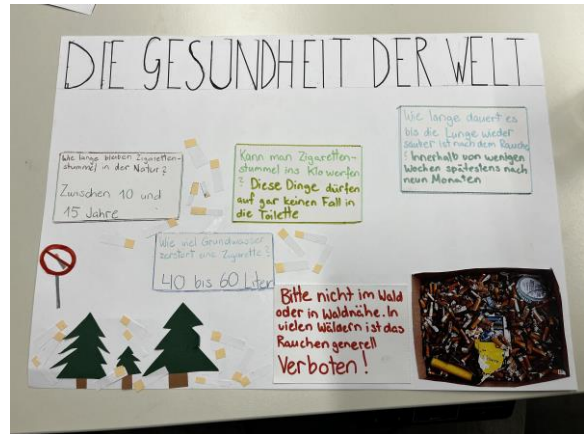 DIE GESUNDHEIT DER WELT
Wie lange bleiben Zigaretten-
stummel in der Natur?
Zwischen 10 und
15 Jahre
Kann man Zigaretten-
stummel ins Klo werfen
? Diese Dinge dürfen
auf gar keinen Fall in
die Toilette
Wie lange dauert es
bis die Lunge wieder
sauber ist nach dem Rauche
? Innerhalb von wenigen
Wochen spätestens nach
neun Monaten
Wie viel Grundwasser
zerstört eine Zigarette
?
40 bis 60 Liter
Bitte nicht im Wald
oder in Waldnähe. In
vielen Wäldern ist das
Rauchen generell
Verboten!